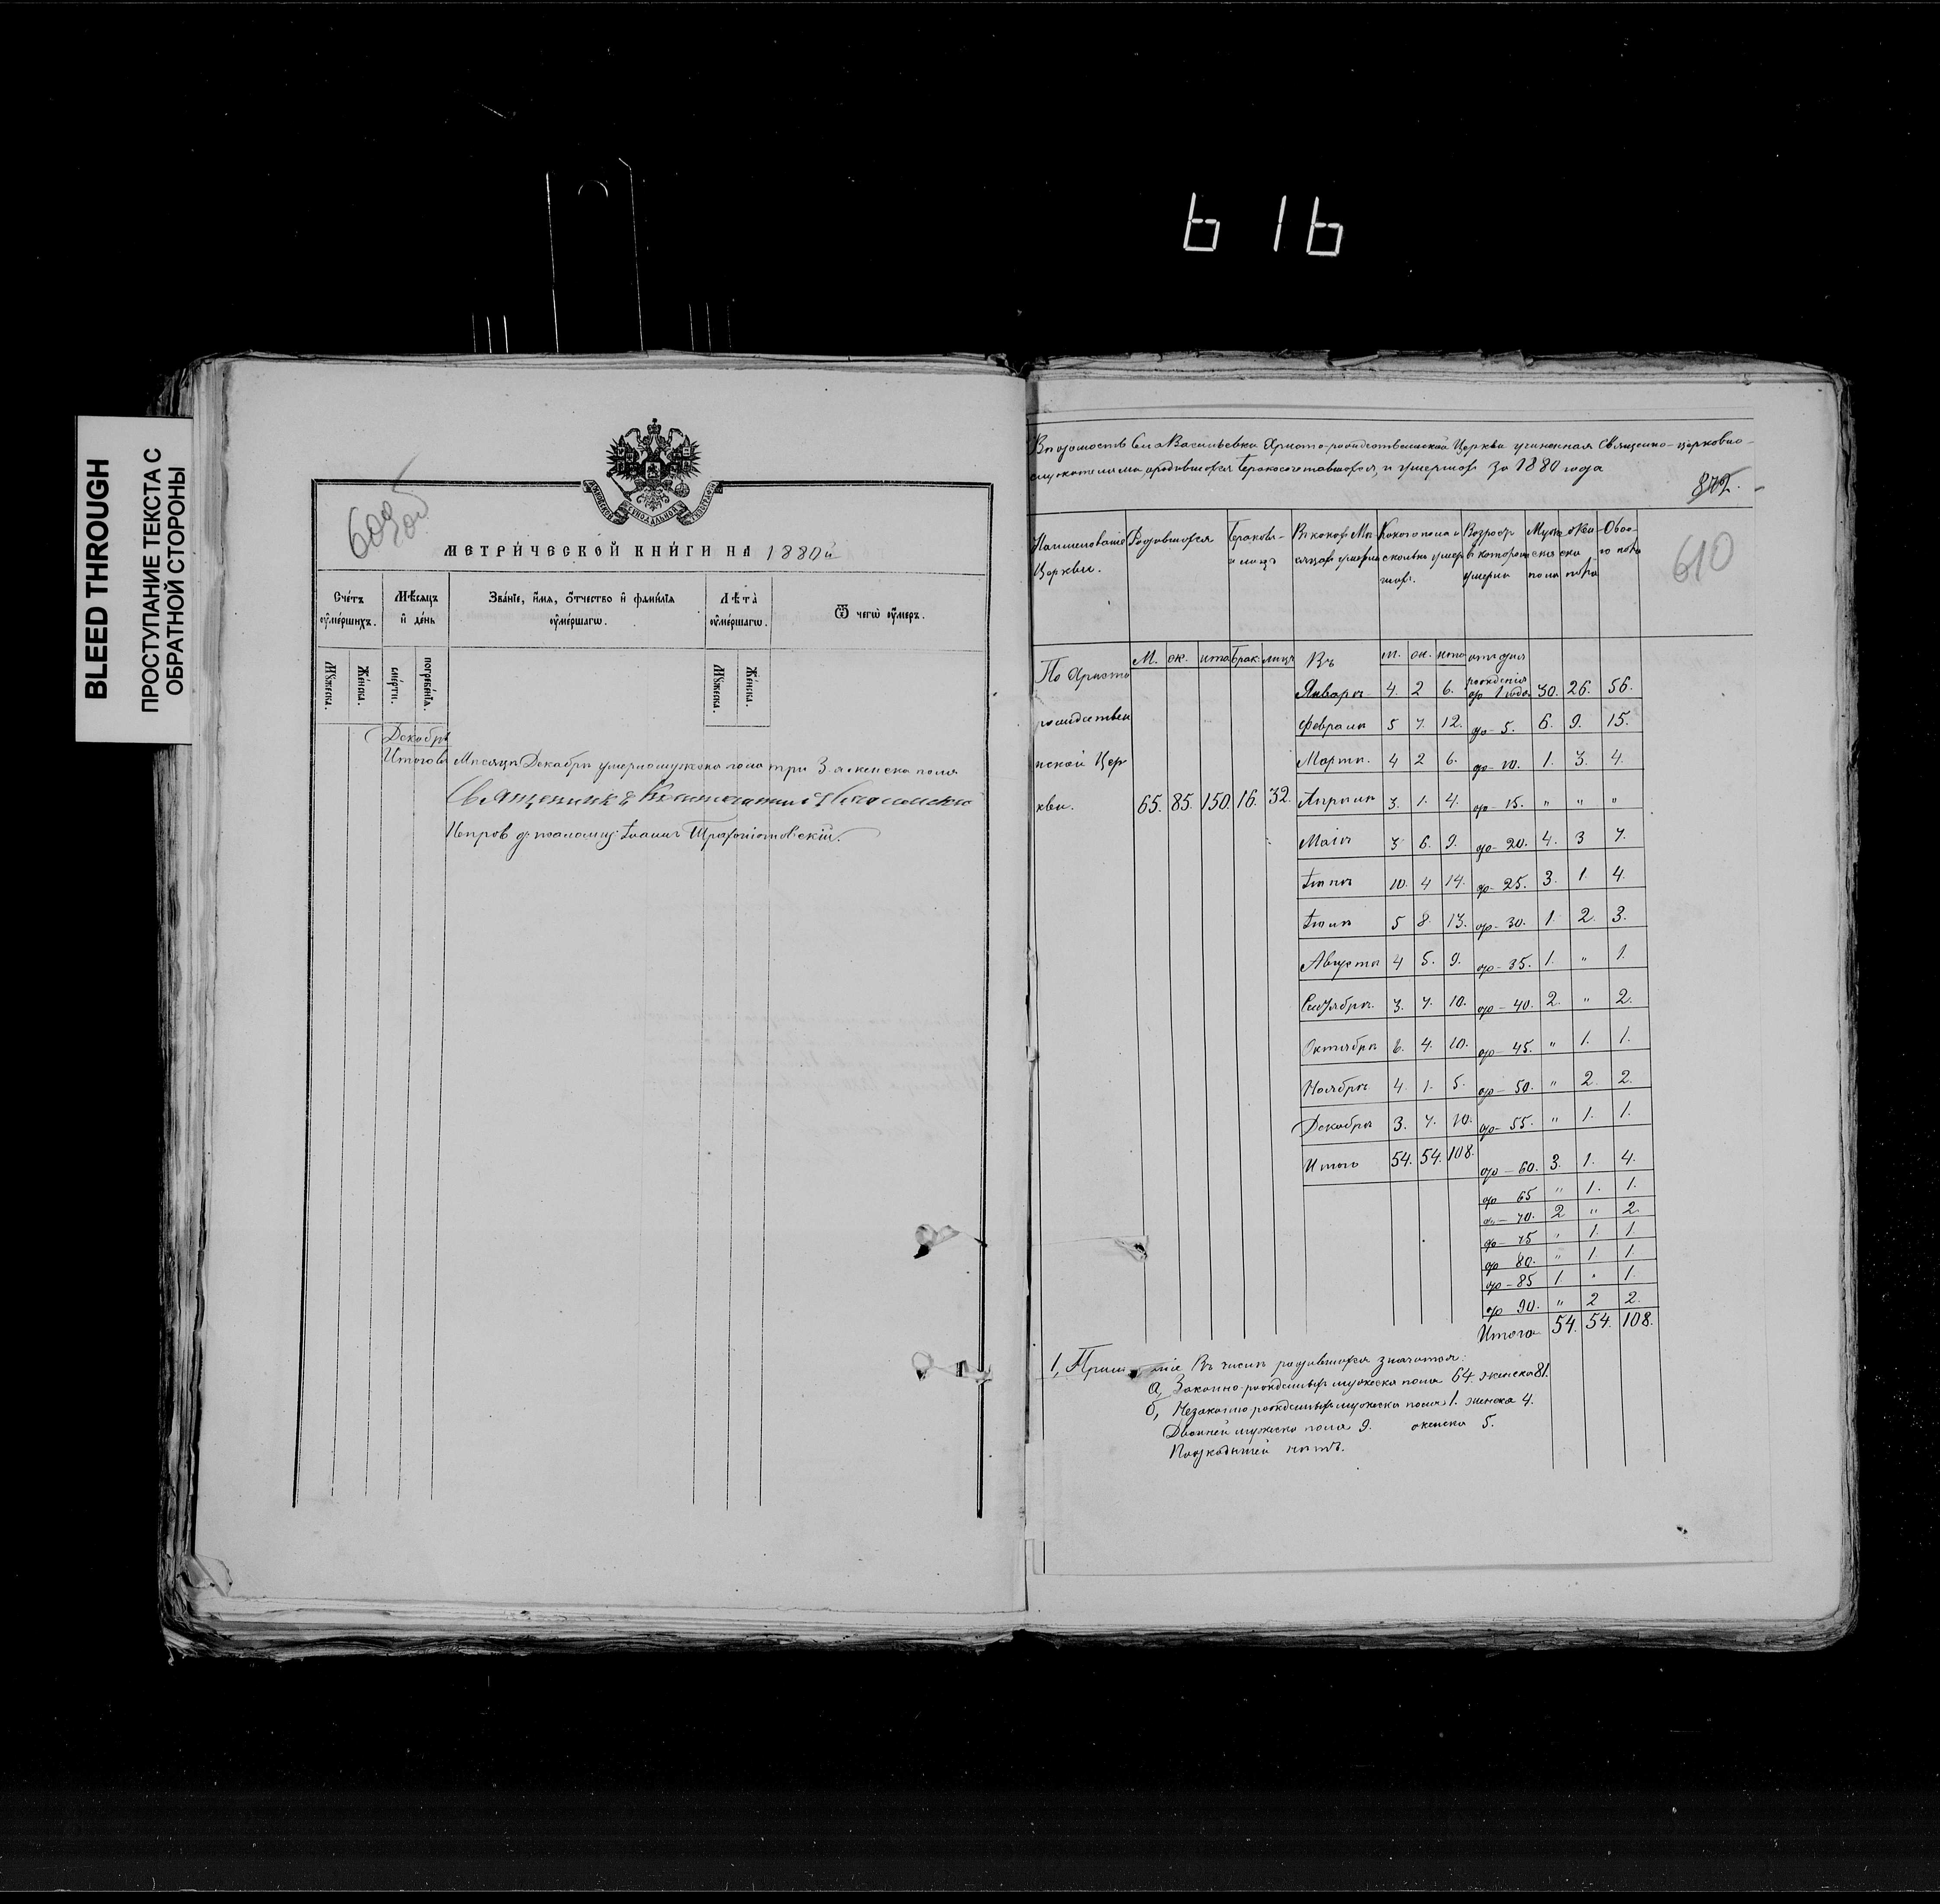 616
BLEED THROUGH
ПРОСТУПАНИЕ ТЕКСТА С
ОБРАТНОЙ СТОРОНЫ
609 об
МОСКОВСКОЙ СѴНОДАЛЬНОЙ ТИПОГРАФІИ
МЕТРИ́ЧЕСКОЙ КНИ́ГИ НА 1880й
Сче́тъ ᲂу҆ме́ршихъ.
Мѣ́сяцъ и҆ де́нь
Зва́нїе, и҆́мя, ѻ҆́тчество и҆ фами́лїя ᲂу҆ме́ршагѡ.
Лѣта̀ ᲂу҆ме́ршагѡ.
Ѿ чегѡ̀ ᲂу҆́меръ.
Мꙋ́жеска.
Же́нска.
сме́рти.
погребе́нїѧ.
Мꙋ́жеска.
Же́нска.
Декабрь
Итого въ Мѣсяцѣ Декабрѣ умерло мужеска пола три 3. а женска пола
Священникъ Константинъ
Испров д. псаломщ: Іоаннъ
Вѣдомость Села Васильевки Христо-рождественской Церкви учиненная Священно-церковно-
служителями о родившихся бракосочетавшихся, и умершихъ за 1880 годъ
872.
610
Наименованіе Церкви.
Родившихся
Браковъ и лицъ
Въ какомъ Мѣсяцѣ умерли
Какого пола и сколько умершихъ.
Возрастъ въ которомъ умерли
Мужеска пола
Женска пола
Обоего пола
М. ж. итого Брак. лицъ Въ м. ж. итого отъ дня рожденія
По Христо
рождествен
нской Цер
кви. 65. 85. 150. 16. 32.
Январѣ 4. 2 6. до 1 года 30. 26. 56.
Февралѣ 5 7. 12. до 5. 6. 9. 15.
Мартѣ. 4 2 6. до 10. 1. 3. 4.
Апрѣлѣ 3. 1. 4. до 15. " " "
Маіѣ 3 6. 9. до 20. 4. 3 7.
Іюнѣ 10. 4 14. до 25. 3. 1. 4.
Іюлѣ 5 8. 13. до 30. 1. 2. 3.
Августѣ 4 5. 9. до 35. 1. " 1.
Сентябрѣ. 3. 7. 10. до 40. 2. " 2.
Октябрѣ 6. 4. 10. до 45. " 1. 1.
Ноябрѣ 4. 1. 5. до 50. " 2. 2.
Декабрѣ 3. 7. 10. до 55. " 1. 1.
Итого 54. 54. 108. до 60. 3. 1. 4.
до 65 " 1. 1.
до 70. 2 " 2.
до 75 " 1. 1.
до 80. " 1. 1.
до 85 1. " 1.
до 90. " 2 2.
Итого 54. 54. 108.
1, Примѣчаніе Въ числѣ родившихся значатся:
а, Законно-рожденныхъ мужеска пола 64. женска 81.
б, Незаконно рожденныхъ мужеска пола 1. женска 4.
Двойней мужеска пола 9. женска 5.
Подкидышей нѣтъ.